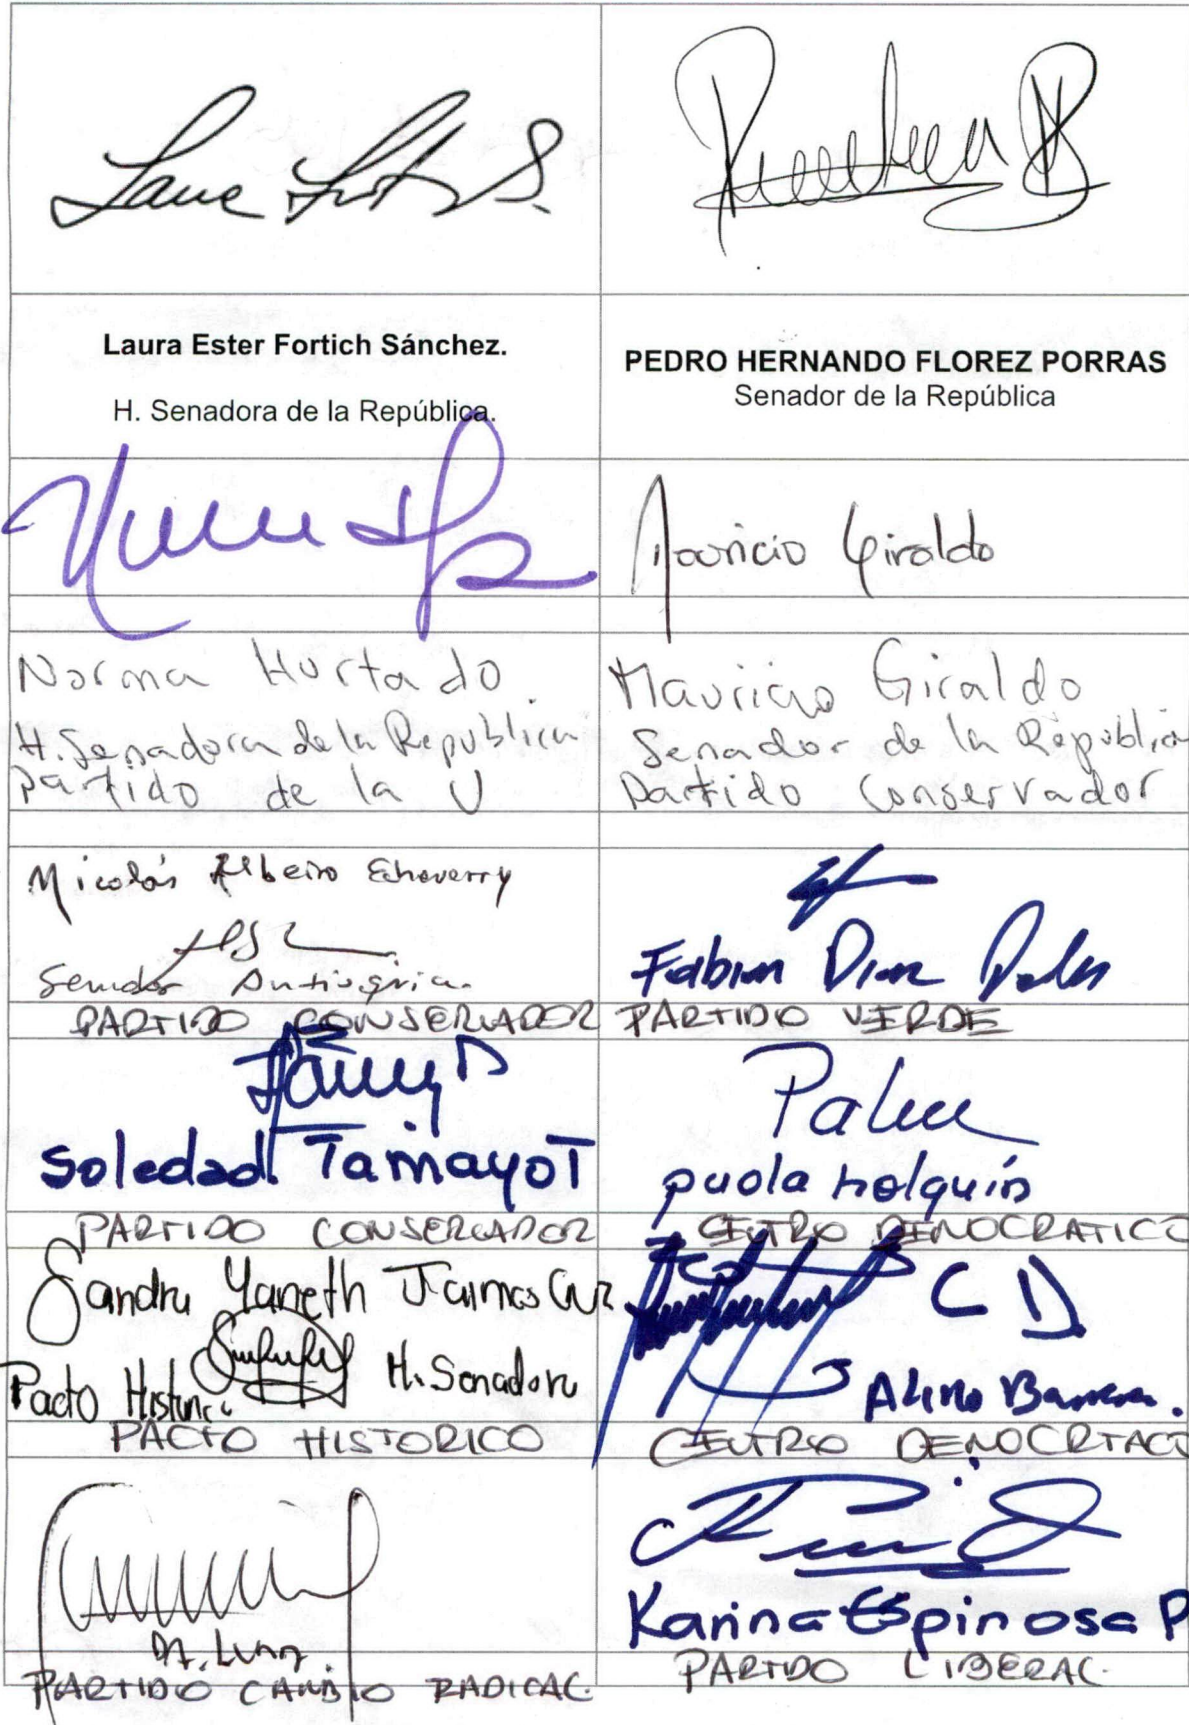 Laura Ester Fortich Sánchez.
H. Senadora de la República.
PEDRO HERNANDO FLOREZ PORRAS
Senador de la República
Mauricio Giraldo
Norma Hurtado.
H. Senadora de la Republica
partido de la U
Mauricio Giraldo
Senador de la Republica
Partido Conservador
Nicolás Albeiro Echeverry
Senador Antioquia.
PARTIDO CONSERVADOR
Fabian Diaz
PARTIDO VERDE
Soledad Tamayo T
PARTIDO CONSERVADOR
paola holguín
CENTRO DEMOCRATICO
Sandra Yaneth Jaimes Cruz
Pacto Historico H. Senadora
PACTO HISTORICO
C D
CENTRO DEMOCRTACI
PARTIDO CAMBIO RADICAL
Karina Espinosa P
PARTIDO LIBERAL.